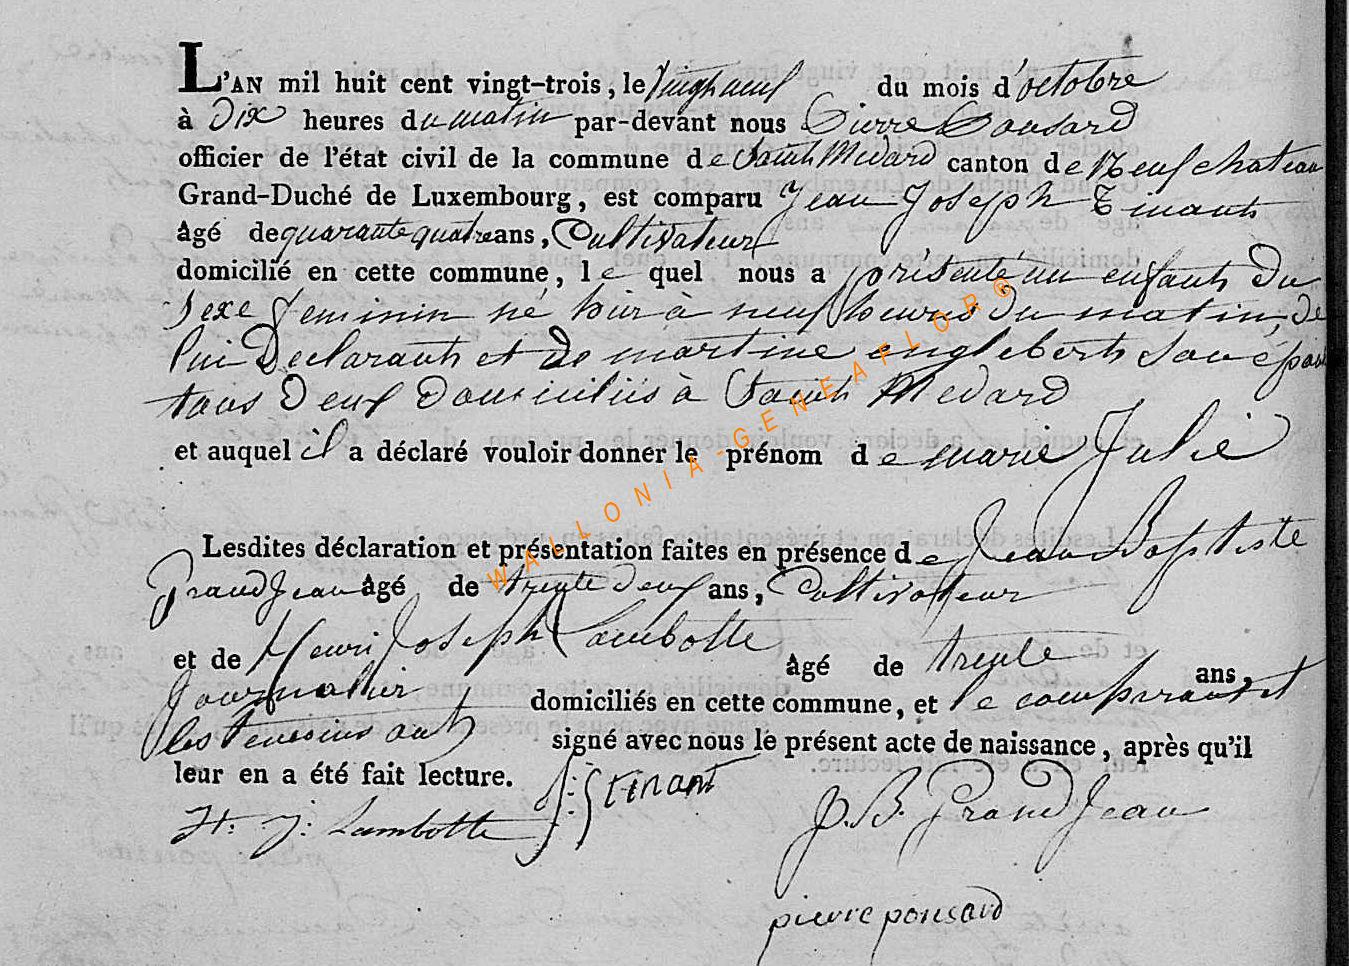 L'AN mil huit cent vingt-trois, le Vingt neuf du mois d'octobre
à Dix heures du matin par-devant nous Pierre Ponsard
officier de l'état civil de la commune de Saint Medard canton de Neufchateau
Grand-Duché de Luxembourg, est comparu Jean Joseph Tinant
âgé de quarante quatre ans, Cultivateur
domicilié en cette commune, le quel nous a présenté un enfant du
Sexe feminin né hier à neuf heures du matin, de
lui Declarant et de martine englebert son épouse
tous Deux Domiciliés à Saint Medard
et auquel il a déclaré vouloir donner le prénom de marie Julie
Lesdites déclaration et présentation faites en présence de Jean Baptiste
GrandJean âgé de trente deux ans, Cultivateur
et de Henri Joseph Lambotte âgé de trente ans,
Journalier domiciliés en cette commune, et le comparant et
les temoins ont signé avec nous le présent acte de naissance, après qu'il
leur en a été fait lecture.
H. J. Lambotte J: J tinant J. B. GrandJean
pierre ponsard
WALLONIA-GENEAFLOR®